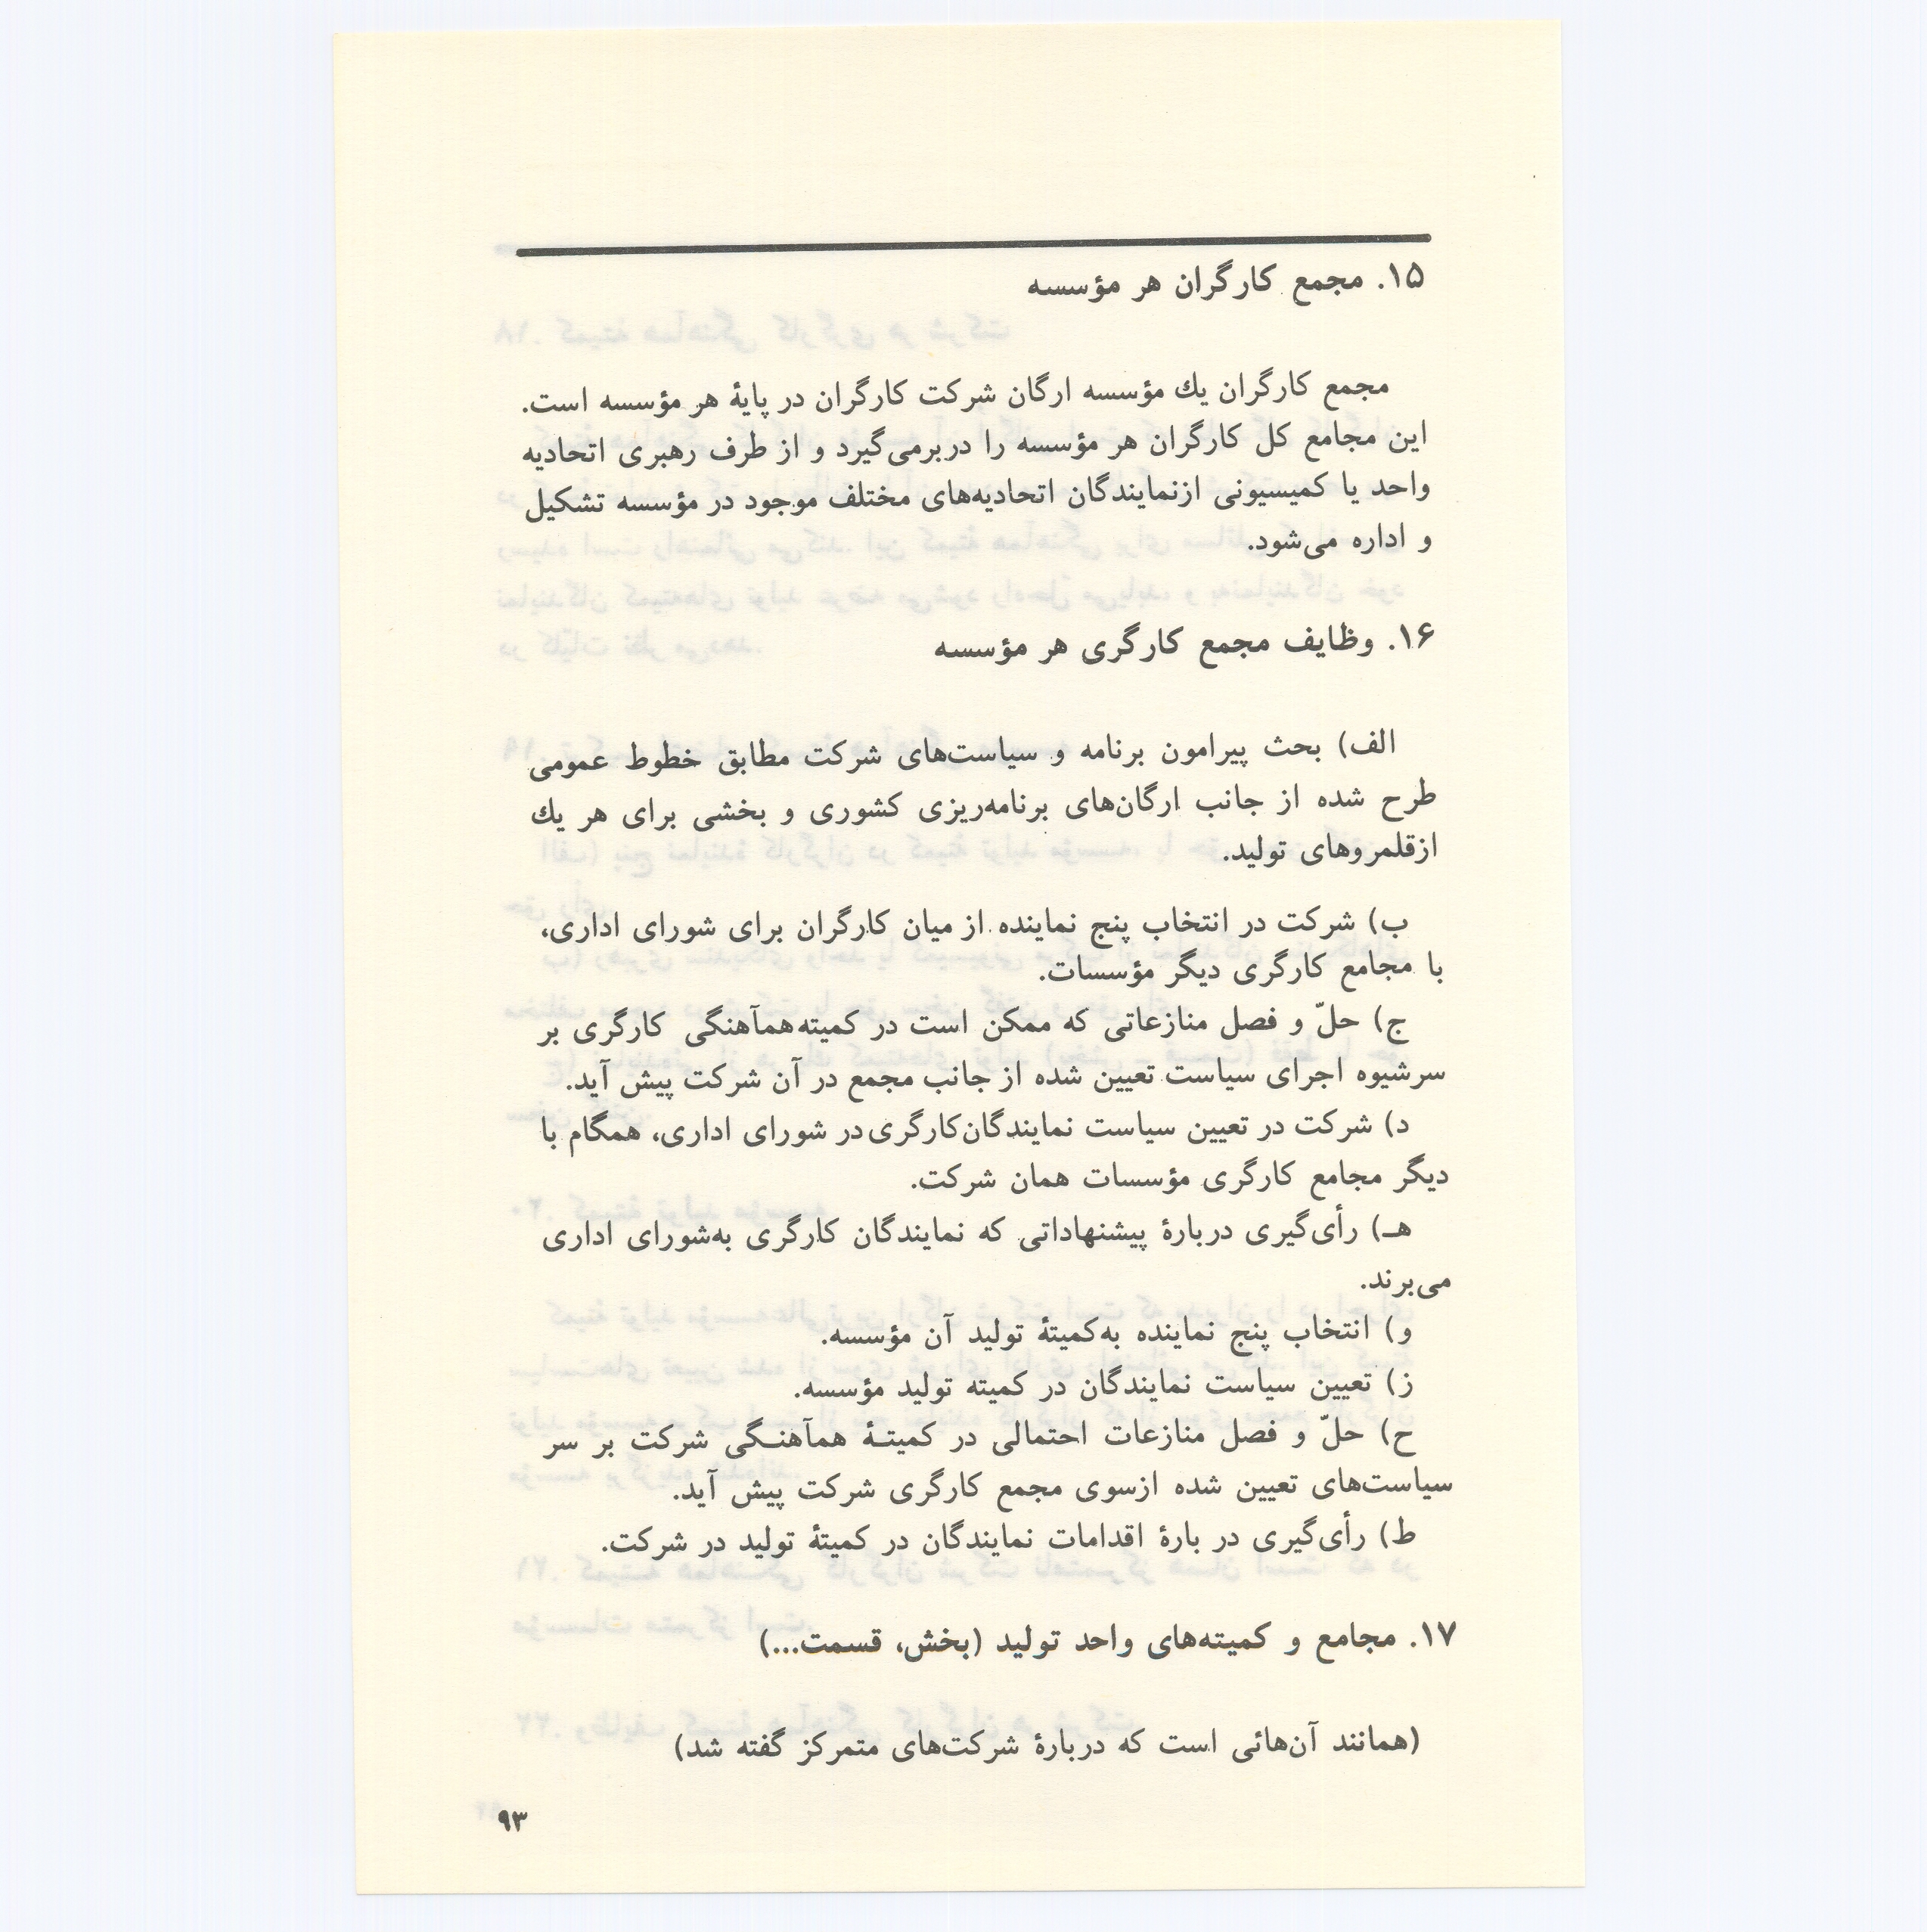 ۱۵. مجمع کارگران هر مؤسسه
مجمع کارگران یك مؤسسه ارگان شرکت کارگران در پایهٔ هر مؤسسه است.
این مجامع کل کارگران هر مؤسسه را دربرمی‌گیرد و از طرف رهبری اتحادیه
واحد یا کمیسیونی ازنمایندگان اتحادیه‌های مختلف موجود در مؤسسه تشکیل
و اداره می‌شود.
۱۶. وظایف مجمع کارگری هر مؤسسه
الف) بحث پیرامون برنامه و سیاست‌های شرکت مطابق خطوط عمومی
طرح شده از جانب ارگان‌های برنامه‌ریزی کشوری و بخشی برای هر یك
ازقلمروهای تولید.
ب) شرکت در انتخاب پنج نماینده از میان کارگران برای شورای اداری،
با مجامع کارگری دیگر مؤسسات.
ج) حلّ و فصل منازعاتی که ممکن است در کمیته‌همآهنگی کارگری بر
سرشیوه اجرای سیاست تعیین شده از جانب مجمع در آن شرکت پیش آید.
د) شرکت در تعیین سیاست نمایندگان‌کارگری‌در شورای اداری، همگام با
دیگر مجامع کارگری مؤسسات همان شرکت.
هـ) رأی‌گیری دربارهٔ پیشنهاداتی که نمایندگان کارگری به‌شورای اداری
می‌برند.
و) انتخاب پنج نماینده به‌کمیتهٔ تولید آن مؤسسه.
ز) تعیین سیاست نمایندگان در کمیته تولید مؤسسه.
ح) حلّ و فصل منازعات احتمالی در کمیتـهٔ همآهنـگی شرکت بر سر
سیاست‌های تعیین شده ازسوی مجمع کارگری شرکت پیش آید.
ط) رأی‌گیری در بارهٔ اقدامات نمایندگان در کمیتهٔ تولید در شرکت.
۱۷. مجامع و کمیته‌های واحد تولید (بخش، قسمت...)
(همانند آن‌هائی است که دربارهٔ شرکت‌های متمرکز گفته شد)
۹۳